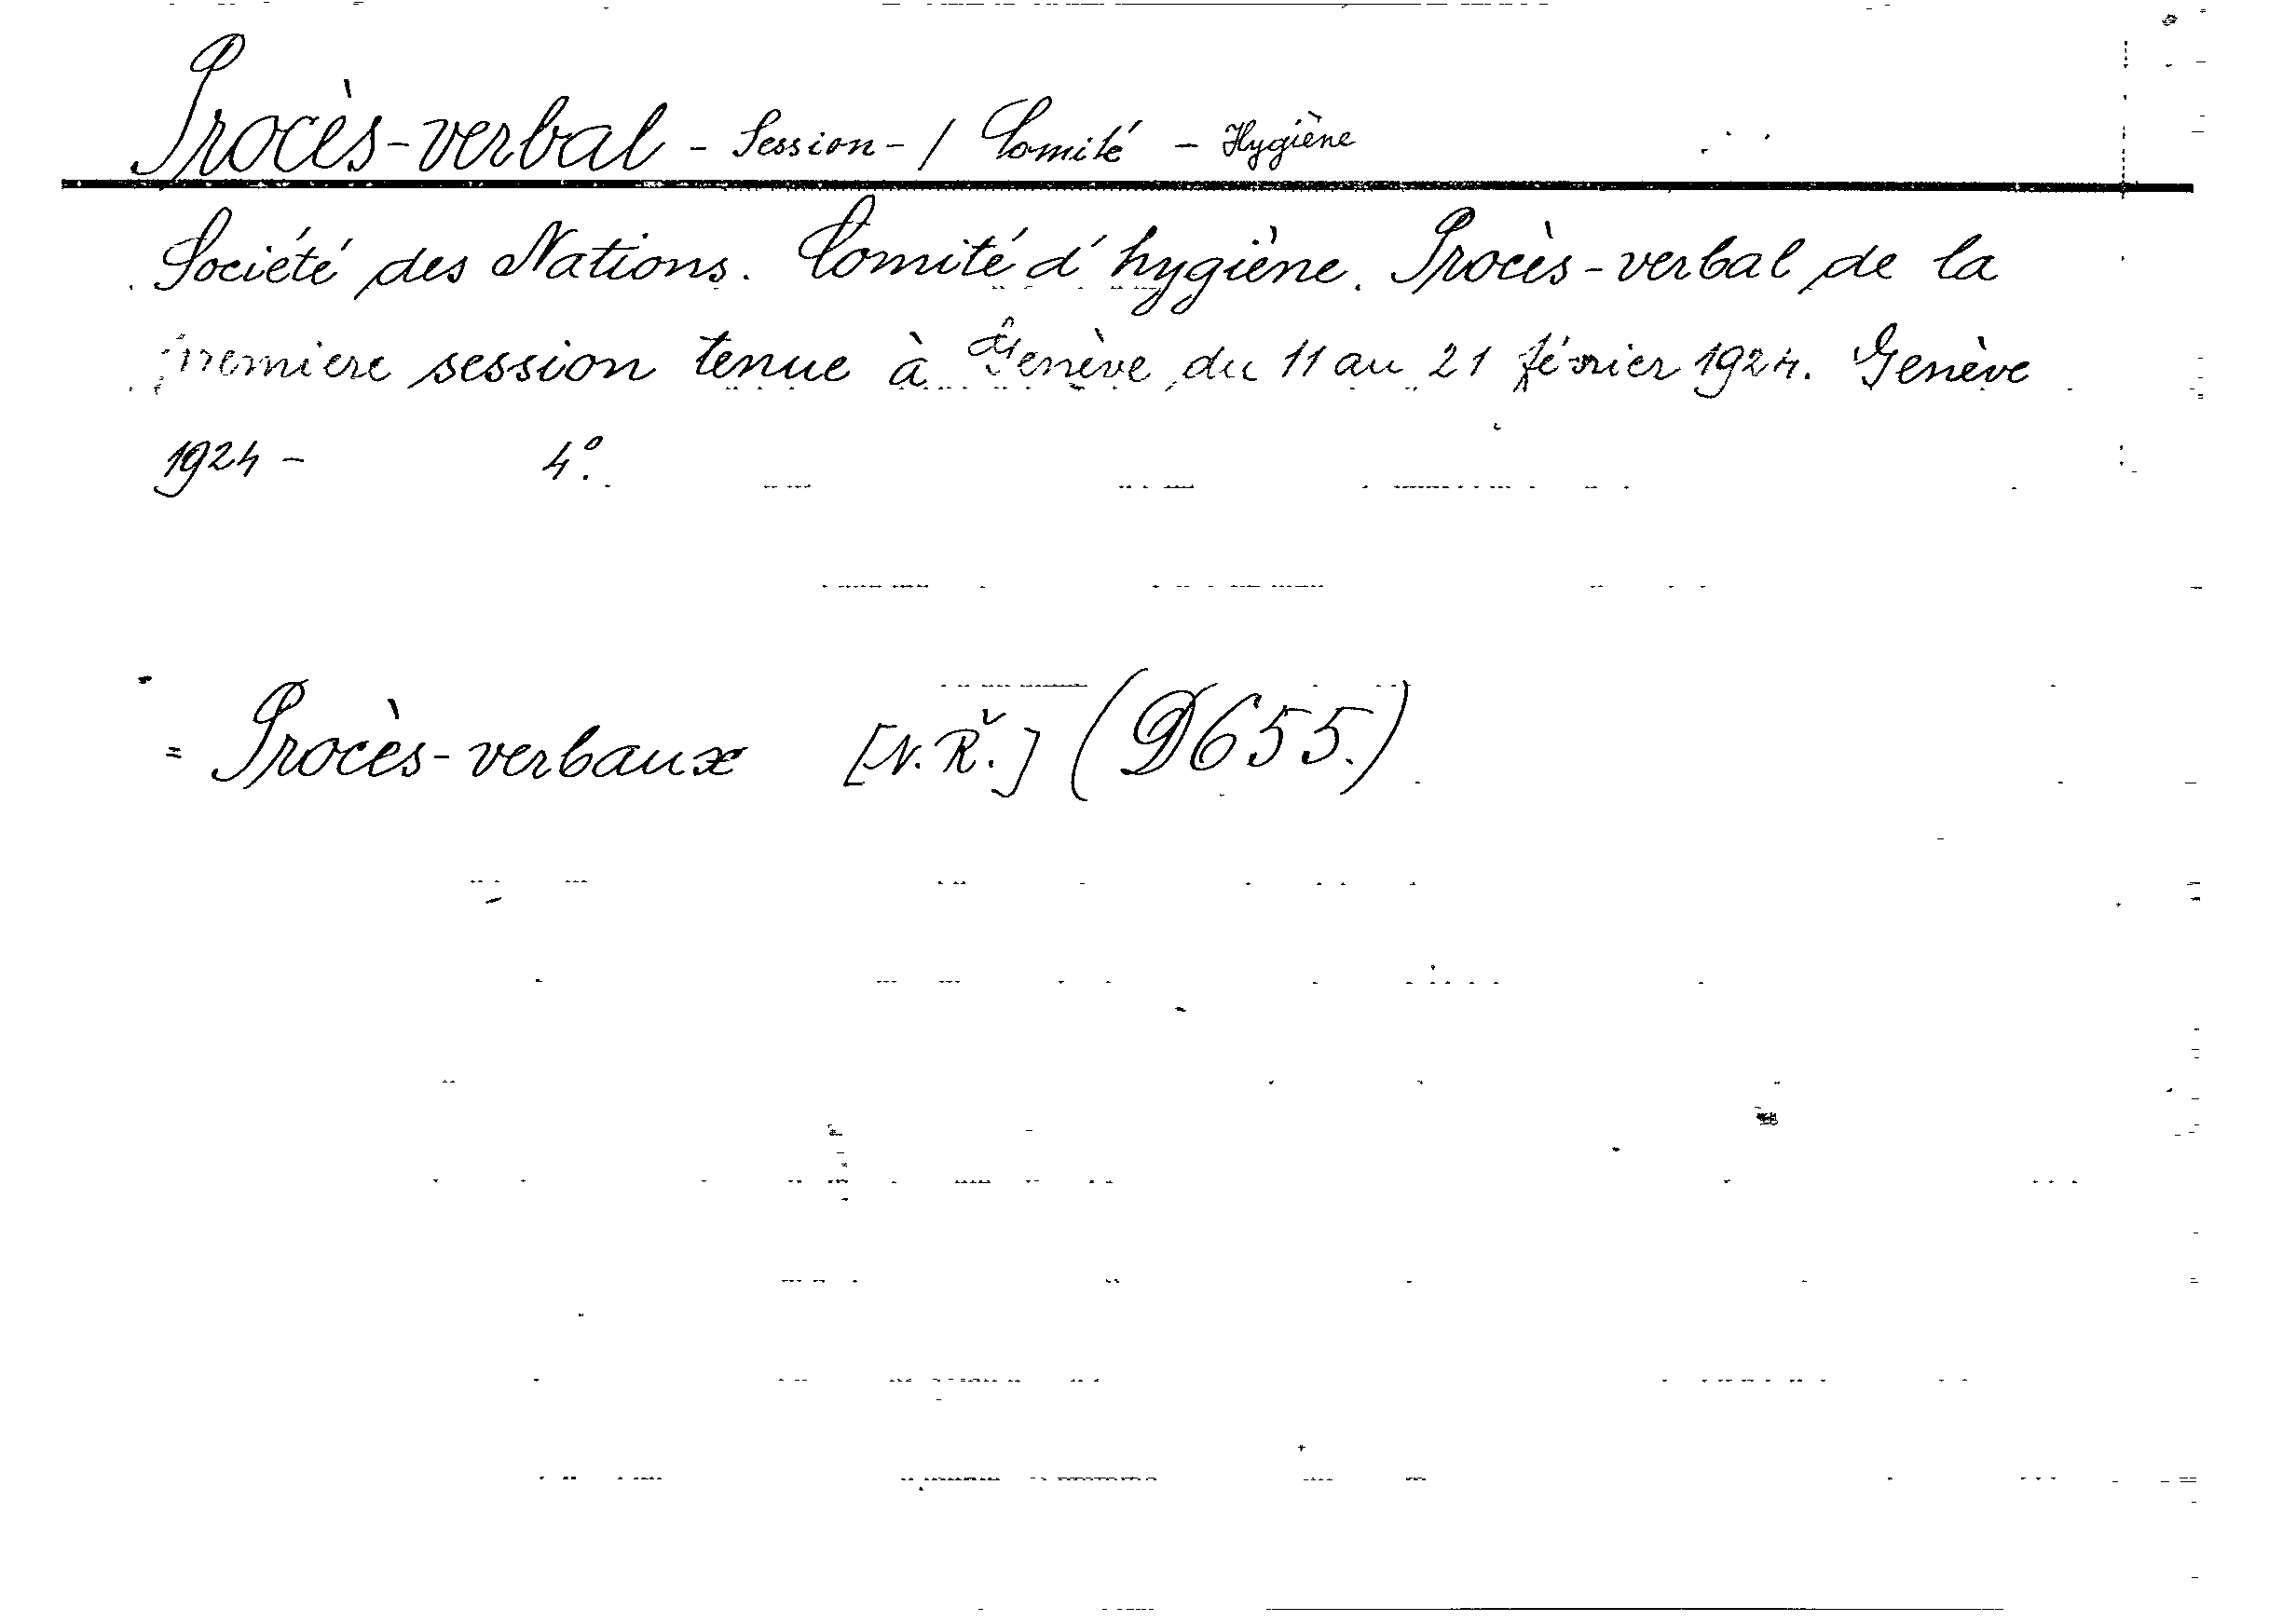 Procès-verbal - Session - / Comité - Hygiène
Société des Nations. Comité d'hygiène. Procès-verbal de la
premiere session tenue à Genève du 11 au 21 février 1924. Genève
1924 - 4°.
= Procès-verbaux [N.Ř.] (D655.)